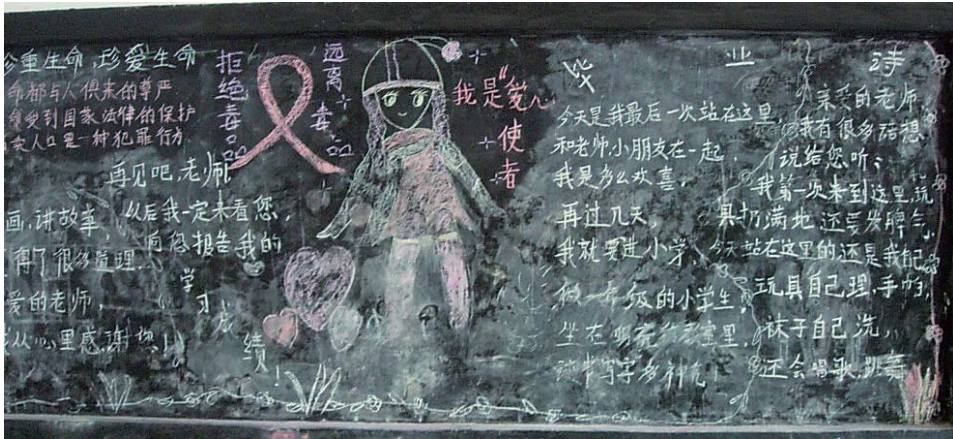 珍重生命,珍爱生命
命都与人俱来的尊严
受到国家法律的保护
卖人口是一种犯罪行为
拒绝毒品
远离毒品
我是"爱心
使者
毕业诗
再见吧,老师
画,讲故事,
得了很多道理.
爱的老师,
从心里感谢您!
以后我一定来看您,
向您报告我的
学
习成
绩!
今天是我最后一次站在这里,
和老师,小朋友在一起,
我是多么欢喜,
再过几天,
我就要进小学,
做一年级的小学生,
坐在明亮的教室里,
读书写字多神气
亲爱的老师,
我有很多话想
说给您听;
我第一次来到这里,玩
具扔满地还要发脾气,
今天站在这里的还是我自己,
玩具自己理,手帕,
袜子自己洗,
还会唱歌,跳舞